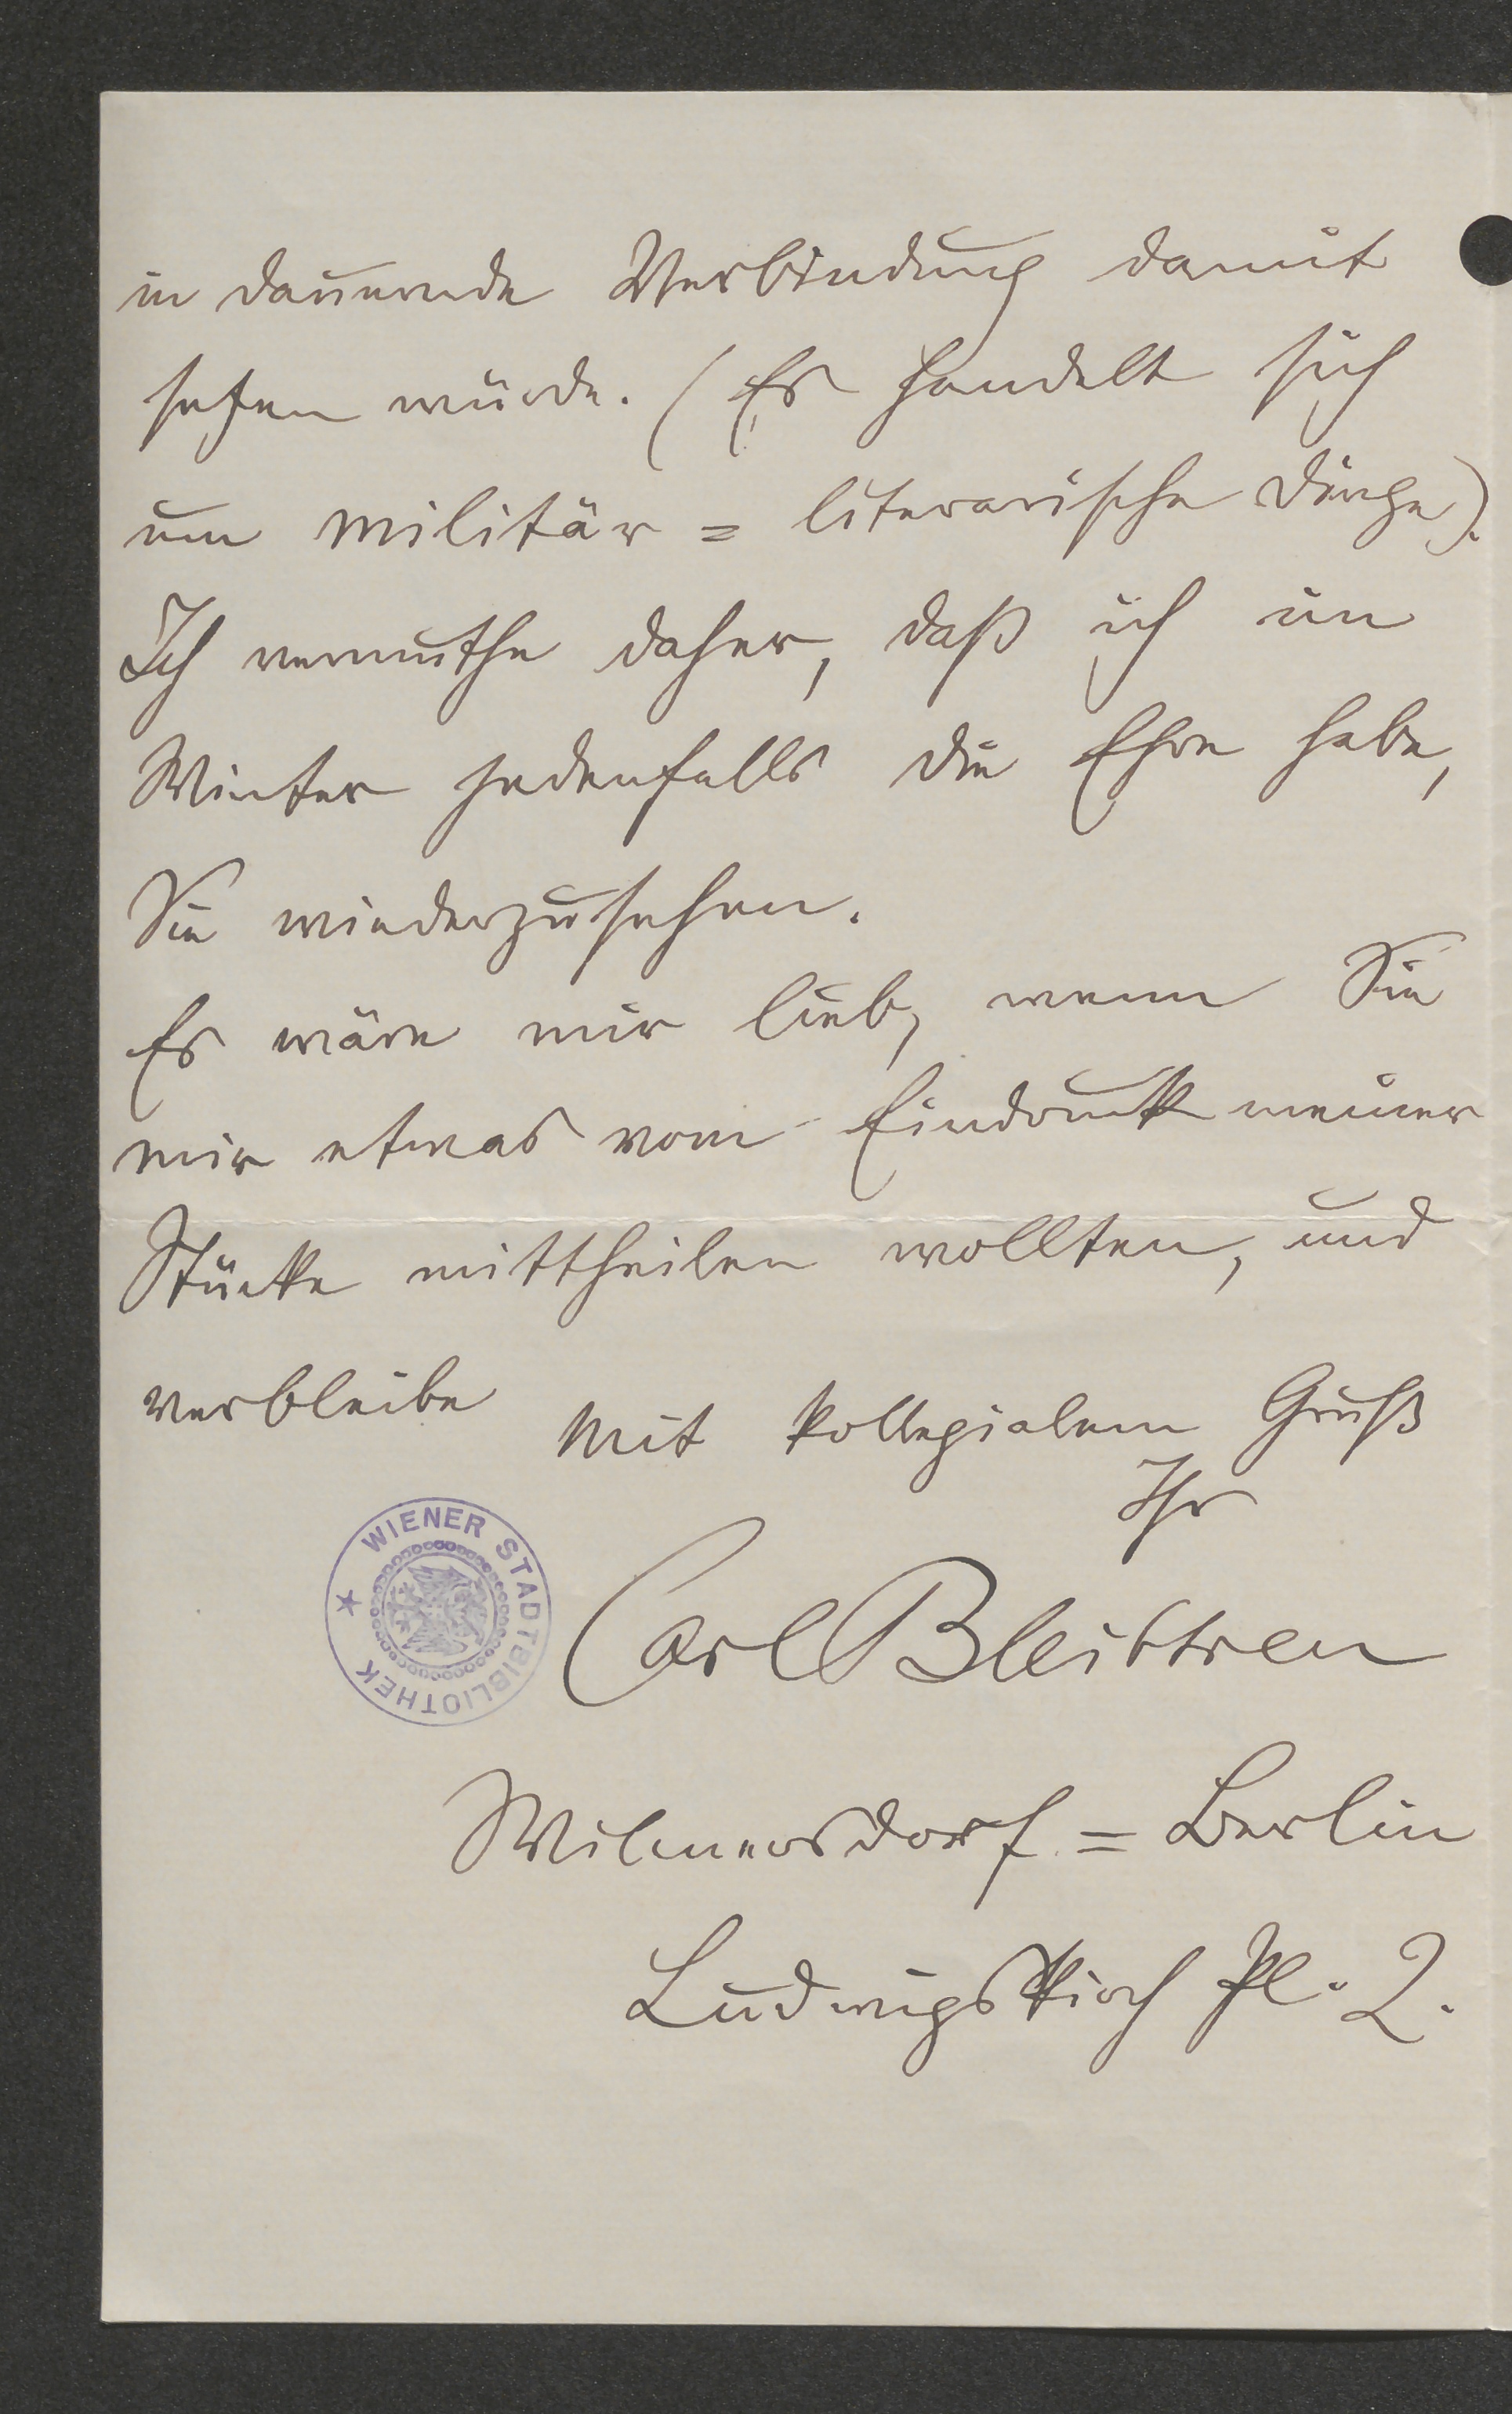 in dauernde Verbindung damit
setzen würde. (Es handelt sich
um militär=literarische Dinge).
Ich vermuthe daher, daß ich im
Winter jedenfalls die Ehre habe,
Sie wiederzusehen.
Es wäre mir lieb, wenn Sie
mir etwas vom Eindruck meiner
Stücke mittheilen wollten, und
verbleibe
Mit kollegialem Gruß
Ihr
WIENER STADTBIBLIOTHEK
Carl Bleibtreu
Wilmersdorf=Berlin
Ludwigskirch Pl. 2.